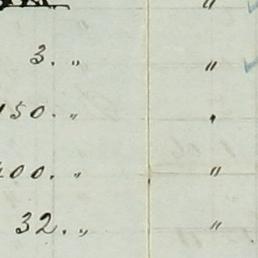 "
3. " "
150. " "
400. " "
32. " "